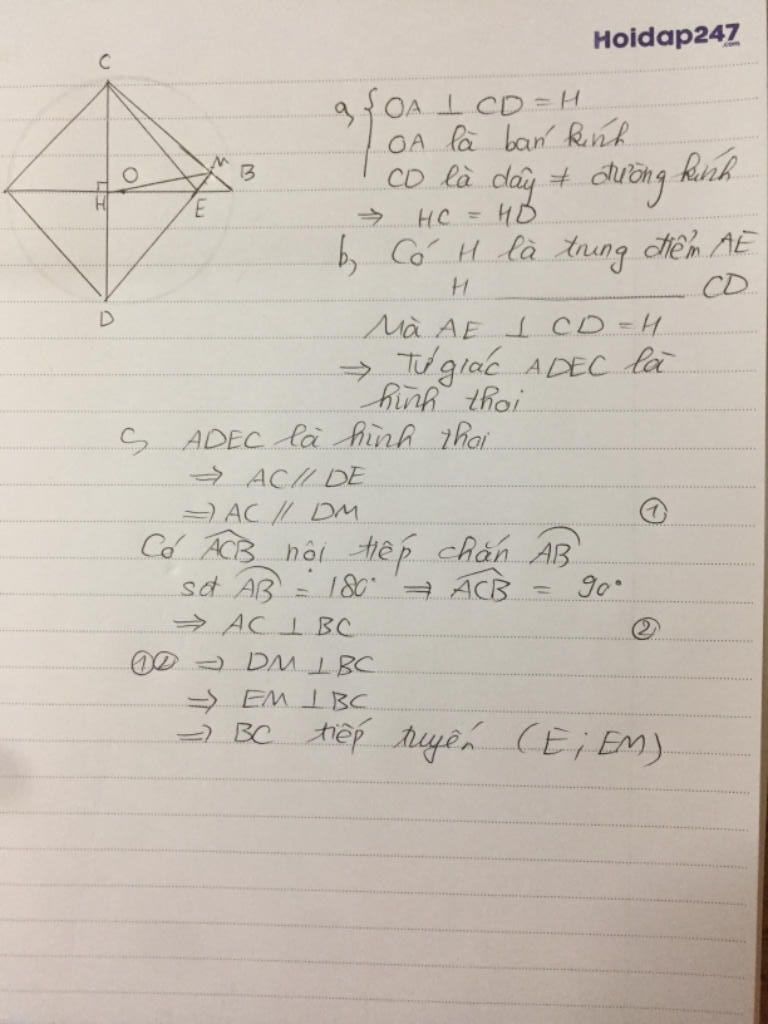 Hoidap247
.com
C
O
M
B
H
E
D
a, { OA ⊥ CD = H
OA là bán kính
CD là dây ≠ đường kính
⇒ HC = HD
b, Có H là trung điểm AE
H ________ CD
Mà AE ⊥ CD = H
⇒ Tứ giác ADEC là
hình thoi
c, ADEC là hình thoi
⇒ AC // DE
⇒ AC // DM ①
Có \widehat{ACB} nội tiếp chắn \overset{\frown}{AB}
sđ \overset{\frown}{AB} = 180° ⇒ \widehat{ACB} = 90°
⇒ AC ⊥ BC ②
①② ⇒ DM ⊥ BC
⇒ EM ⊥ BC
⇒ BC tiếp tuyến (E; EM)